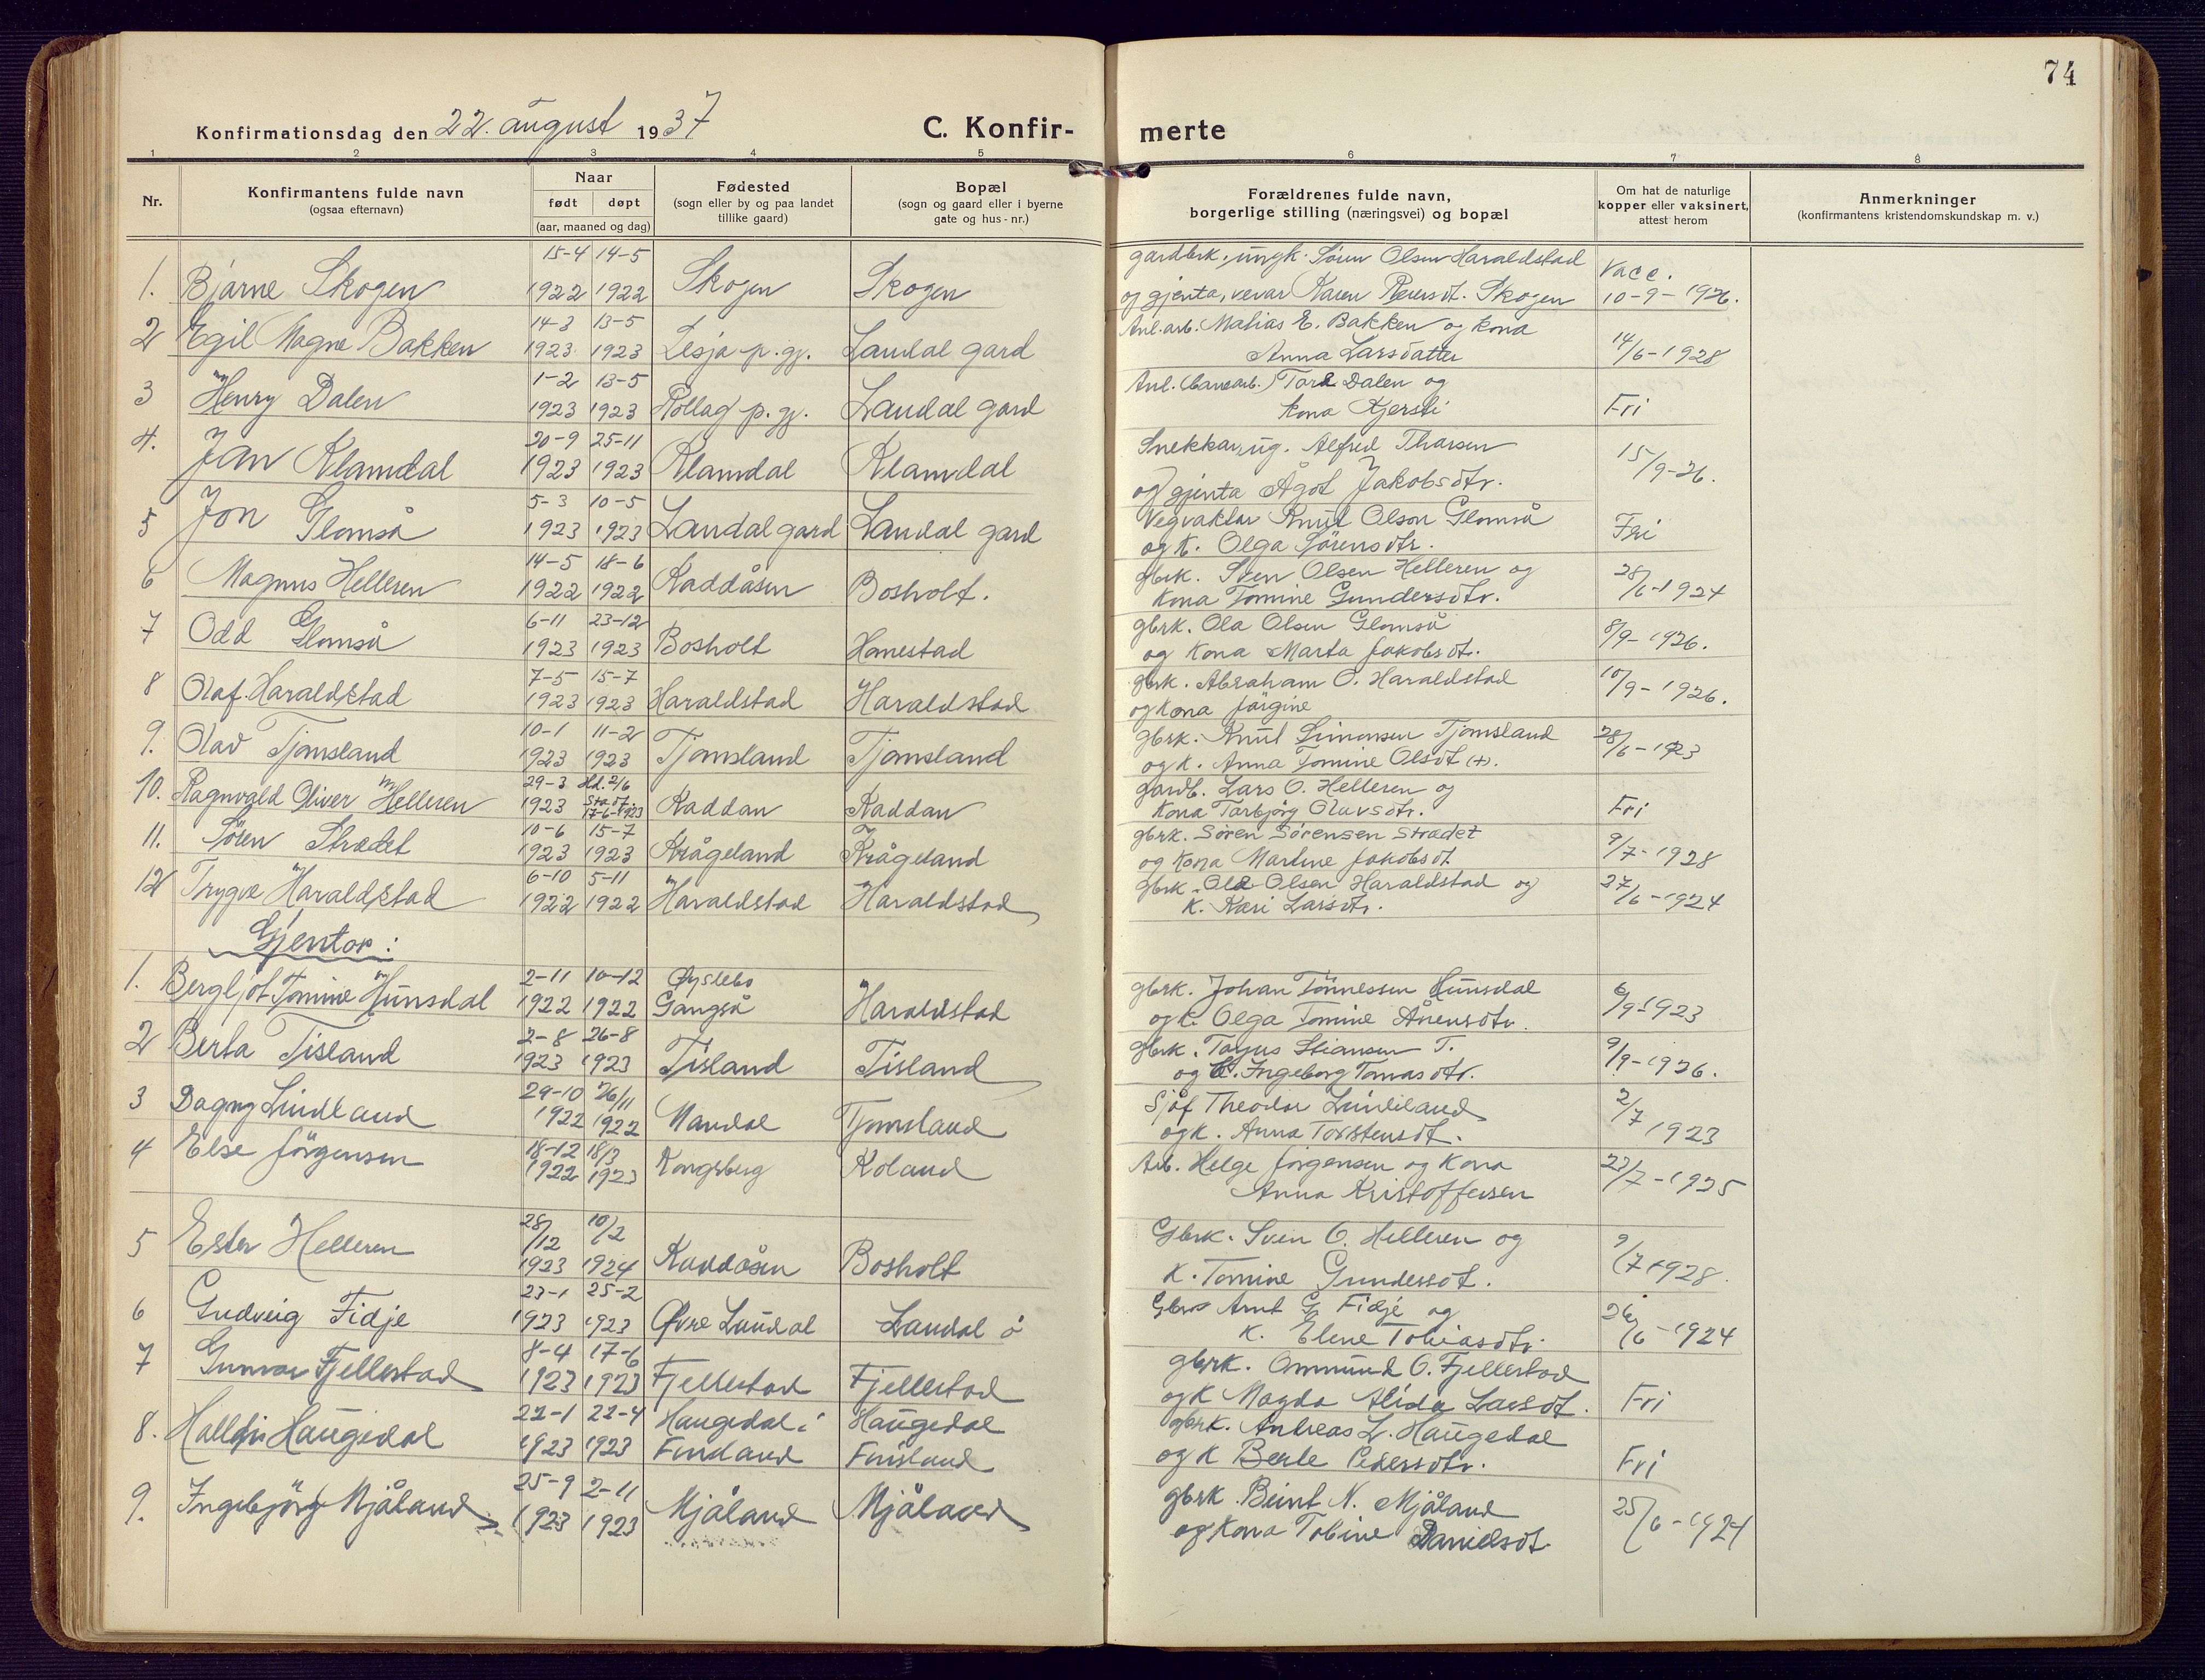 74
Konfirmationsdag den 22. august 1937
C. Konfir-merte
1 2 3 4 5 6 7 8
Nr.
Konfirmantens fulde navn
(ogsaa efternavn)
Naar
født døpt
(aar, maaned og dag)
Fødested
(sogn eller by og paa landet
tillike gaard)
Bopæl
(sogn og gaard eller i byerne
gate og hus-nr.)
Forældrenes fulde navn,
borgerlige stilling (næringsvei) og bopæl
Om hat de naturlige
kopper eller vaksinert,
attest herom
Anmerkninger
(konfirmantens kristendomskundskap m. v.)
15-4 14-5 gardbrk. ungk. Søren Olsen Haraldstad Vacc.
1. Bjarne Skogen 1922 1922 Skogen Skogen og gjenta, vevar Karen Skogen 10-9-1926.
14-3 13-5 Anl.arb. Matias E. Bakken og kona
2 Egil Magne Bakken 1923 1923 Lesja p.gj. Laudal gard Anna Larsdatter 14/6-1928
1-2 13-5 Anl. Tore Dalen og
3 Henry Dalen 1923 1923 Rollag p.gj. Laudal gard kona Kjersti Fri
4. 20-9 25-11 Snekkar, ug. Alfred Tharsen
Jan Klamdal 1923 1923 Klamdal Klamdal og gjenta Ågot Jakobsdtr. 15/9-26.
5-3 10-5 Vegvaktar Knut Olson Glomså
5 Jon Glomså 1923 1923 Laudal gard Laudal gard og k. Olga Sörensdtr. Fri
14-5 18-6 gbrk. Sven Olsen Helleren og
6 Magnus Helleren 1922 1922 Raddåsen Bosholt. kona Tomine Gundersdtr. 28/6-1924
6-11 23-12 gbrk. Ola Olsen Glomså
7 Odd Glomså 1923 1923 Bosholt Honestad og kona Marta Jakobsdt. 8/9-1926.
7-5 15-7 gbrk. Abraham O. Haraldstad
8 Olaf Haraldstad 1923 1923 Haraldstad Haraldstad og kona Jörgine 10/9-1926.
10-1 11-2 gbrk. Knut Simonsen Tjomsland
9. Olav Tjomsland 1923 1923 Tjomsland Tjomsland og k. Anna Tomine Olsdt (+). 28/6-1923
29-3 Hd. 2/6 gardb. Lars O. Helleren og
10. Ragnvald Oliver Helleren 1923 Stadf. 17-6-1923 Raddan Raddan kona Tarbjørg Olavsdtr. Fri
10-6 15-7 gbrk. Sören Sörensen Strædet
11. Sören Strædet 1923 1923 Krågeland Krågeland og kona Martine Jakobsdt 9/7-1928
6-10 5-11 gbrk. Ola Olsen Haraldstad og
12 Trygve Haraldstad 1922 1922 Haraldstad Haraldstad k. Kari Larsdtr. 27/6-1924
Gjentor:
2-11 10-12 Øyslebø gbrk. Johan Tönnessen Hunsdal
1. Bergljot Tomine Hunsdal 1922 1922 Gangså Haraldstad og k. Olga Tomine Ånensdtr. 6/9-1923
2-8 26-8 gbrk. Tarjus Stiansen T.
2 Berta Tisland 1923 1923 Tisland Tisland og k. Ingeborg Tomasdtr. 9/9-1926.
29-10 26/11 Sjåf Theodor Lindland
3 Dagny Lindland 1922 1922 Mandal Tjomsland og k. Anna Torstensdt. 2/7 1923
18-12 18/3 Arb. Helge Jörgensen og kona
4 Else Jörgensen 1922 1923 Kongsberg Koland Anna Kristoffersen 23/7-1925
28/12 10/2 Gbrk. Sven O. Helleren og
5 Ester Helleren 1923 1924 Raddåsen Bosholt k. Tomine Gundersdt. 9/7-1928.
23-1 25-2 Gbrk Arnt G Fidje og
6 Gudveig Fidje 1923 1923 Øvre Laudal Laudal ö k. Elene Tobiasdtr. 26/6-1924
8-4 17-6 gbrk. Ommund O. Fjellestad
7 Gunvor Fjellestad 1923 1923 Fjellestad Fjellestad og k Magda Alida Larsdt. Fri
22-1 22-4 Haugedal i Haugedal gbrk. Andreas L. Haugedal
8. Halldis Haugedal 1923 1923 Finsland Finsland og k Berte Pedersdtr. Fri
25-9 2-11 gbrk. Beint N. Mjåland
9. Ingebjörg Mjåland 1923 1923 Mjåland Mjåland og kona Tobine Danielsdt. 25/6-1924